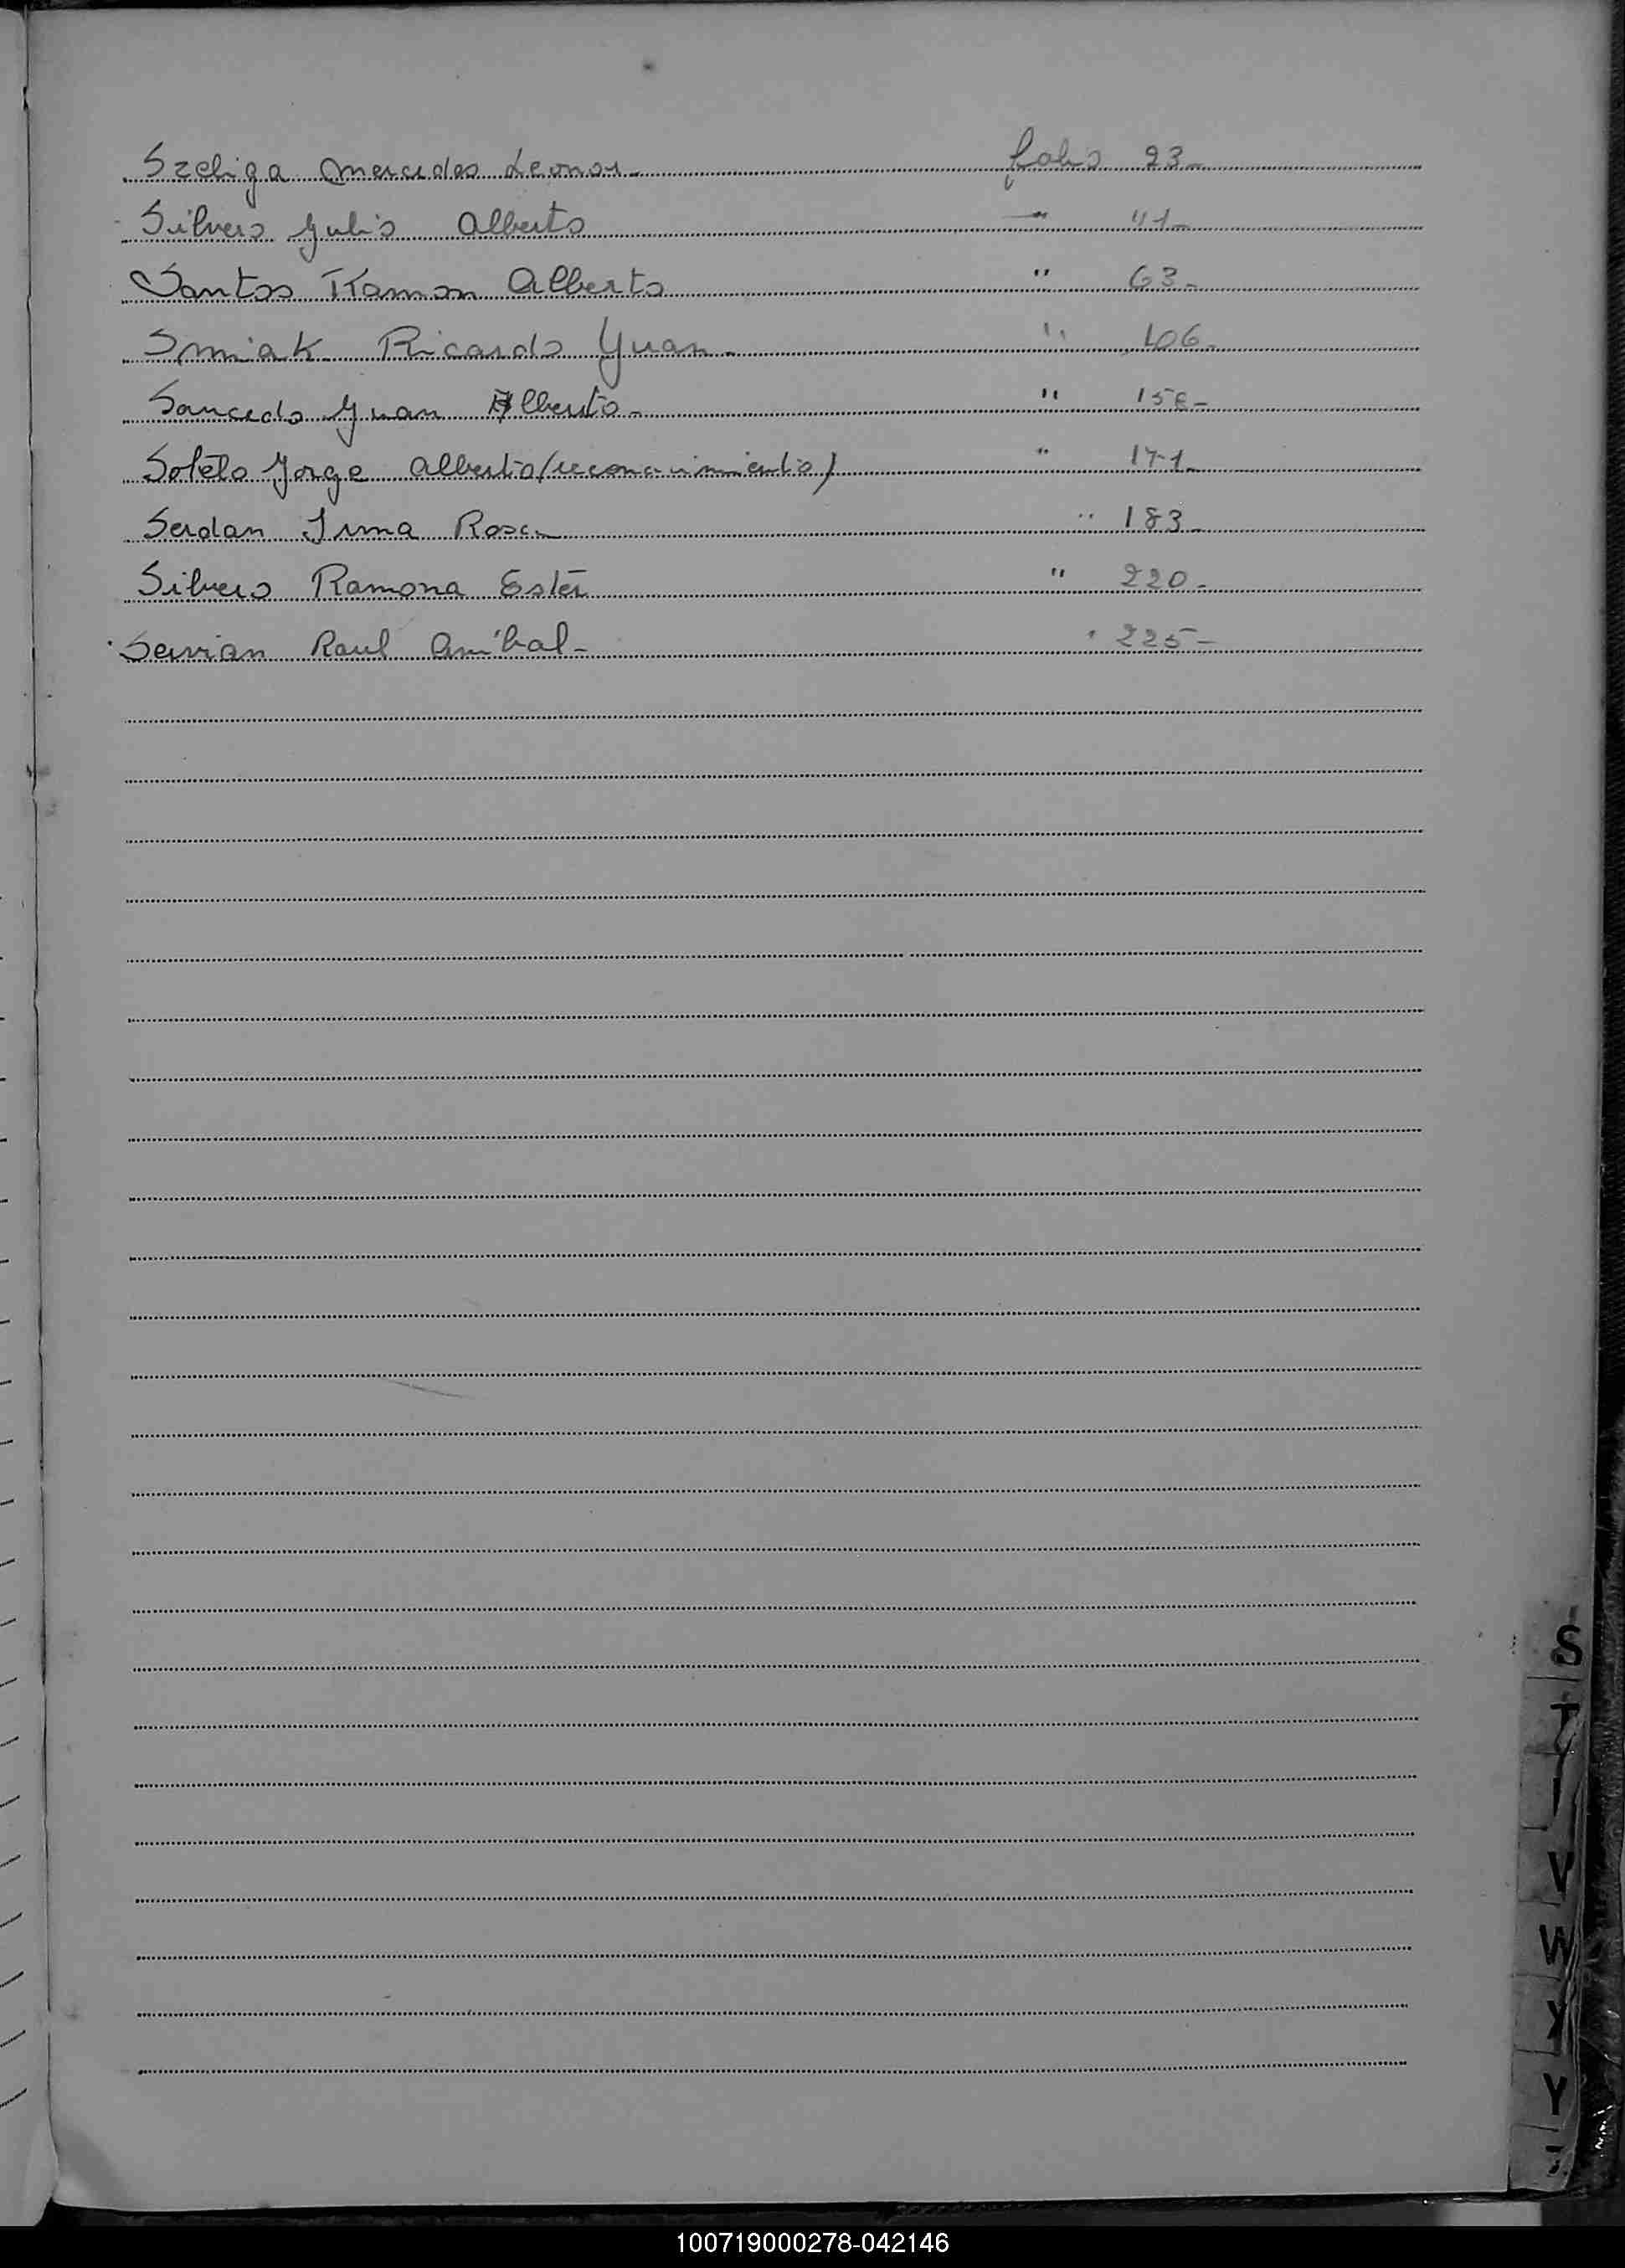 Szeliga Mercedes Leonor folio 23
Silvero Julio Alberto " 41
Santos Ramon Alberto " 63
Smiak Ricardo Juan " 106
Saucedo Juan Alberto "
Sotelo Jorge Alberto (reconocimiento) " 171
Serdan Irma Rosa " 183
Silvero Ramona Ester " 220
Servian Raul Aníbal " 225
S
T
V
W
X
Y
100719000278-042146